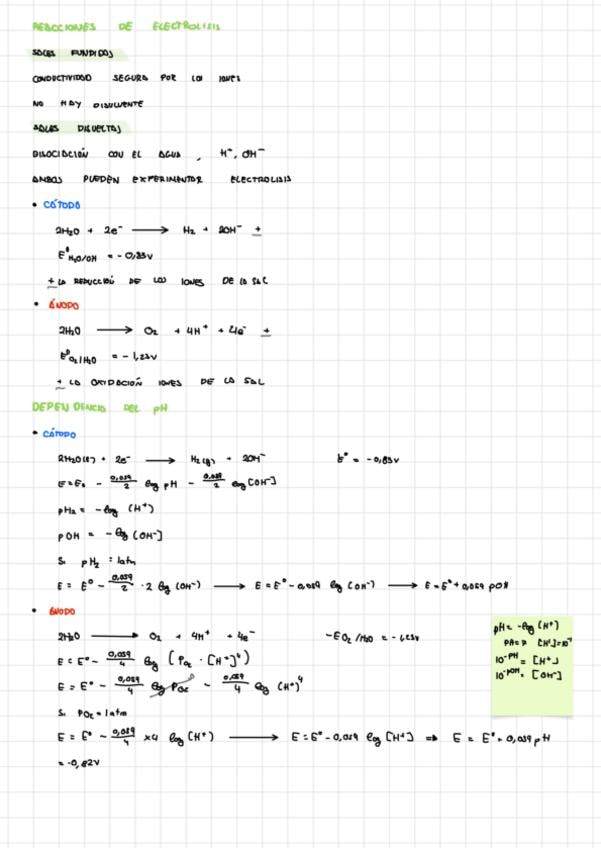 REACCIONES DE ELECTROLISIS
SALES FUNDIDAS
CONDUCTIVIDAD SEGURA POR LOS IONES
NO HAY DISOLVENTE
SALES DISUELTAS
DISOCIACIÓN CON EL AGUA, H⁺, OH⁻
AMBOS PUEDEN EXPERIMENTAR ELECTROLISIS
• CÁTODO
2H₂O + 2e⁻ ⟶ H₂ + 2OH⁻ +
E°H₂O/OH = -0,83V
+ LA REDUCCIÓN DE LOS IONES DE LA SAL
• ÁNODO
2H₂O ⟶ O₂ + 4H⁺ + 4e⁻ +
E°O₂/H₂O = -1,23V
+ LA OXIDACIÓN IONES DE LA SAL
DEPENDENCIA DEL pH
• CÁTODO
2H₂O(l) + 2e⁻ ⟶ H₂(g) + 2OH⁻ E° = -0,83V
E=E₀ - 0,059/2 log pH - 0,059/2 log [OH⁻]
pH₂ = -log (H⁺)
pOH = -log (OH⁻)
Si pH₂ = 1atm
E = E° - 0,059/2 · 2 log (OH⁻) ⟶ E = E° - 0,059 log (OH⁻) ⟶ E = E° + 0,059 pOH
• ÁNODO
2H₂O ⟶ O₂ + 4H⁺ + 4e⁻ -E O₂/H₂O = -1,23V
E = E° - 0,059/4 log (PO₂ · [H⁺]⁴)
E = E° - 0,059/4 log PO₂ - 0,059/4 log (H⁺)⁴
Si PO₂ = 1atm
E = E° - 0,059/4 x4 log (H⁺) ⟶ E = E° - 0,059 log [H⁺] ⇒ E = E° + 0,059 pH
= -0,82V
pH = -log (H⁺)
pH=7 [H⁺]=10⁻⁷
10⁻ᵖᴴ = [H⁺]
10⁻ᵖᴼᴴ = [OH⁻]